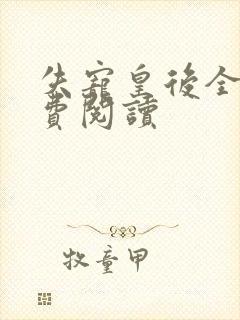 失寵皇後全
費閱讀
牧童甲